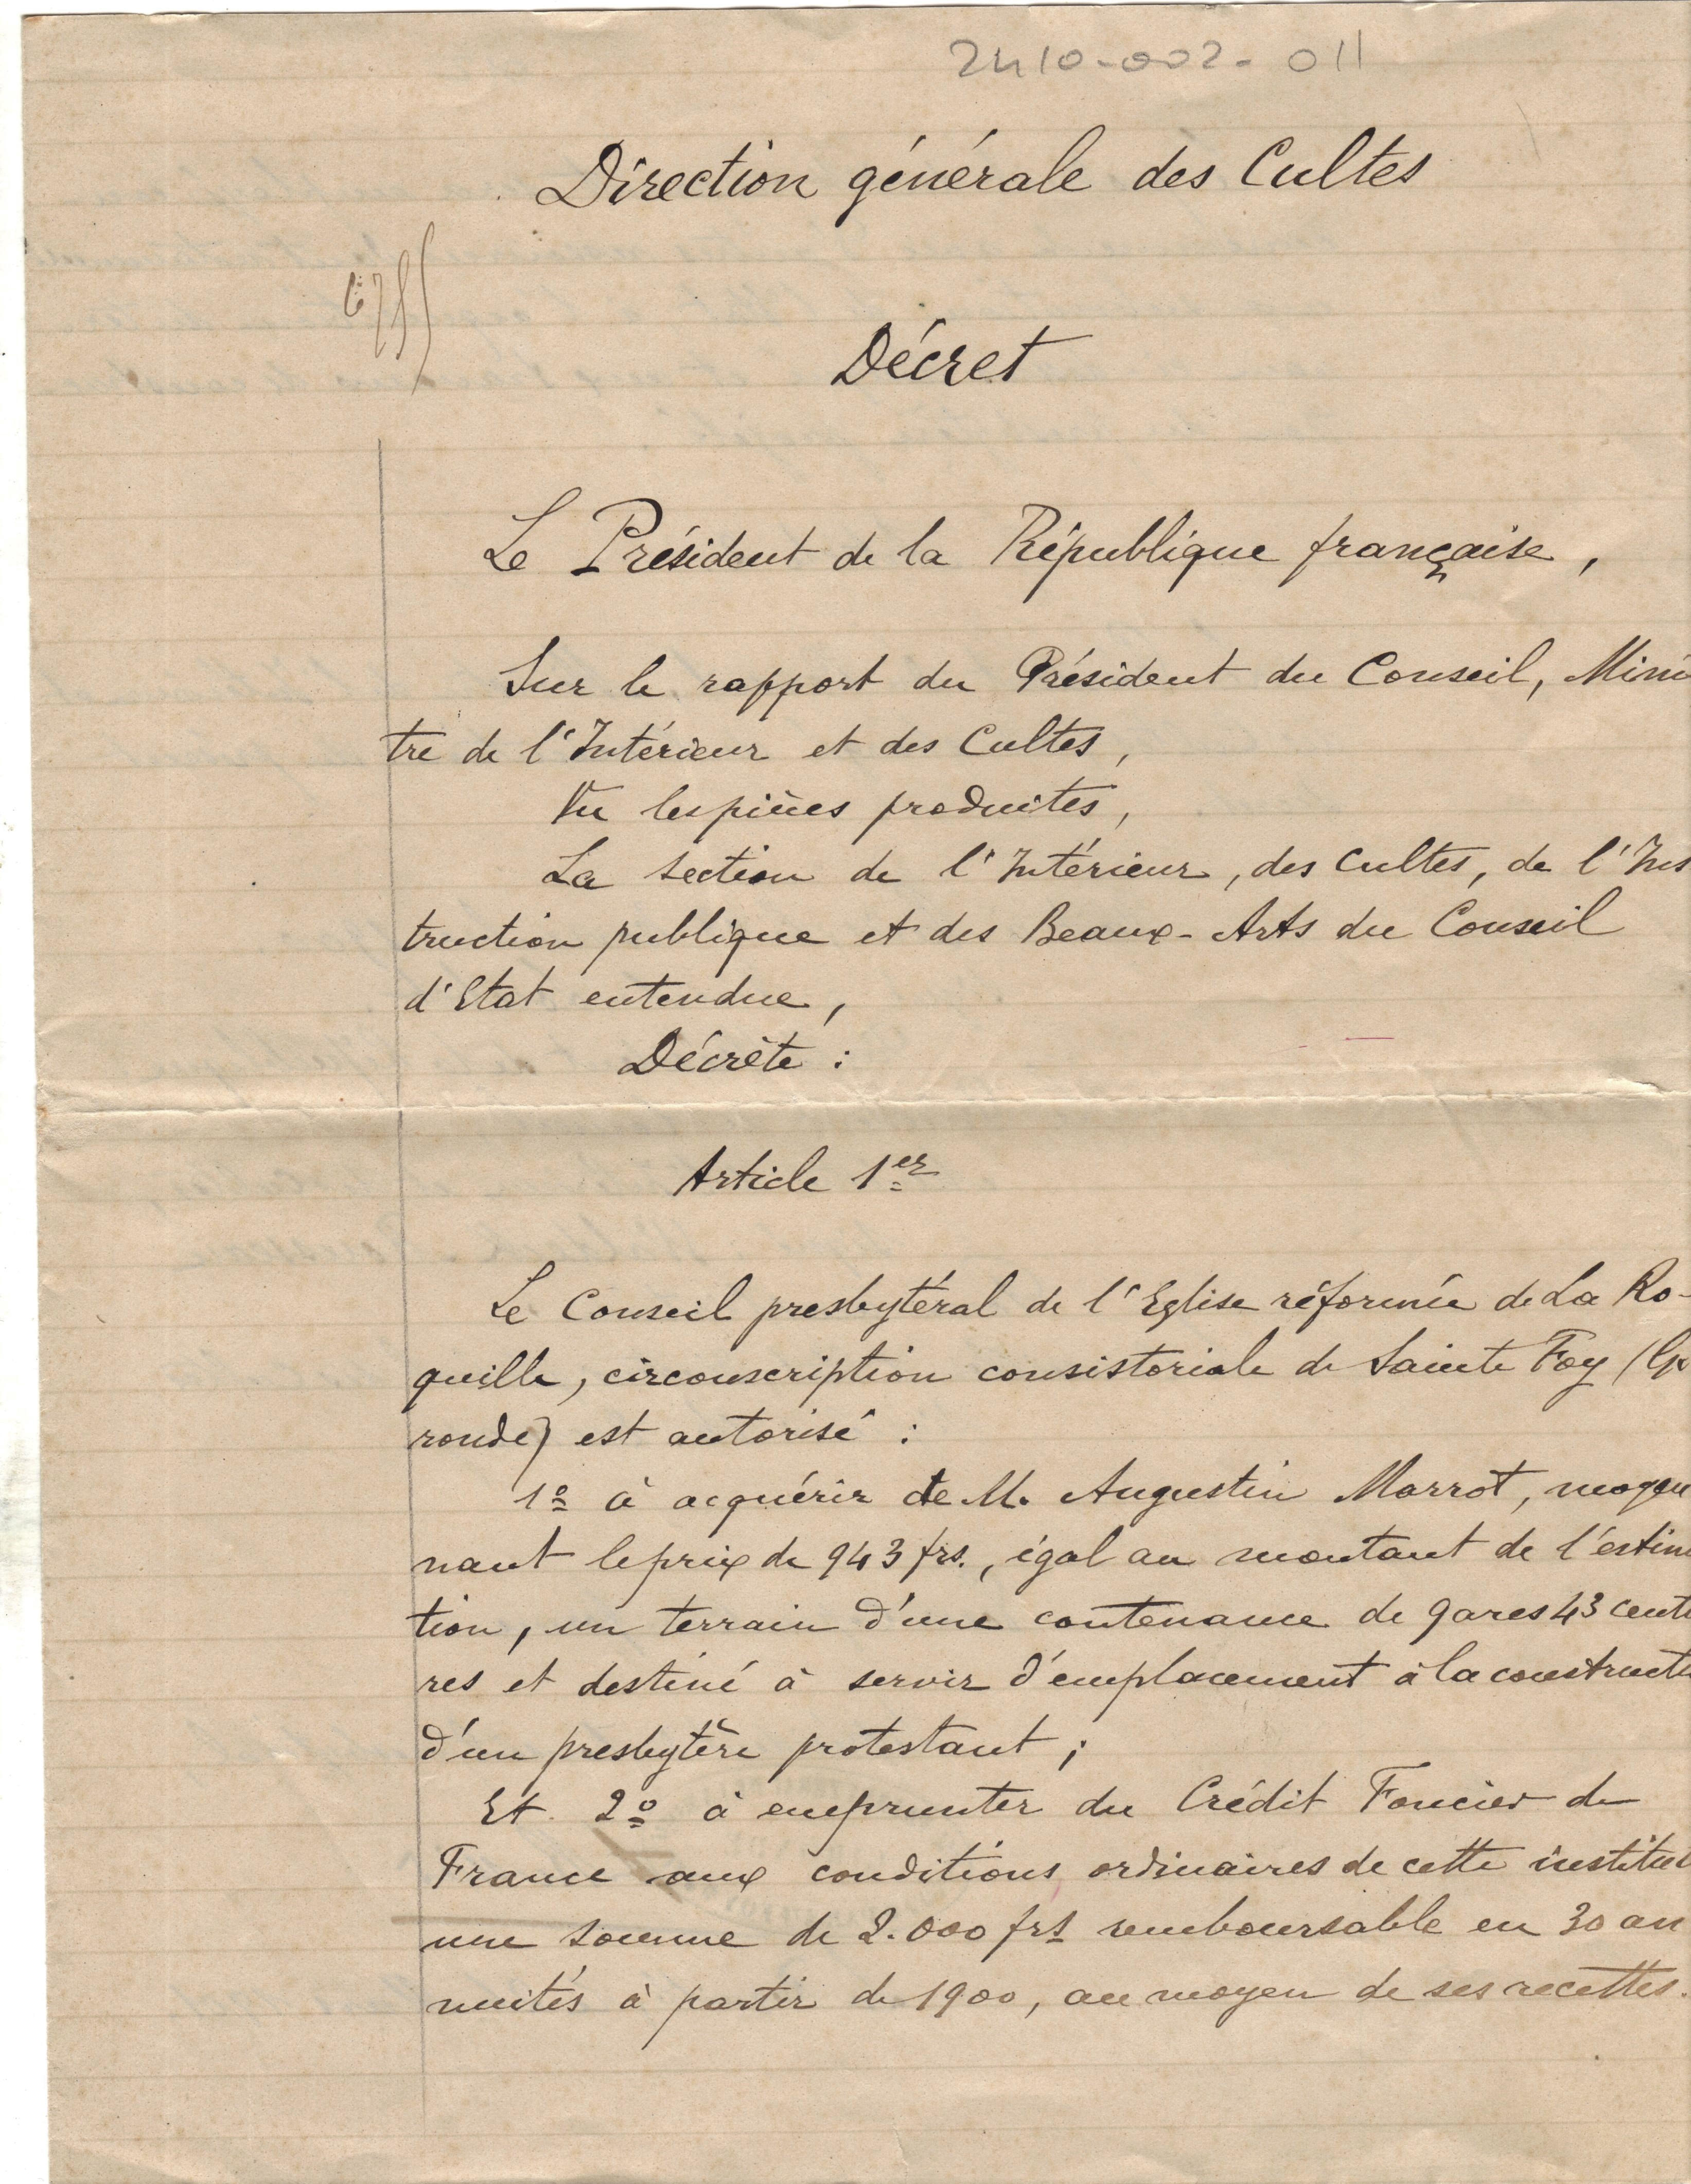 2410-002-011
Direction générale des Cultes
Décret
Le Président de la République française,
Sur le rapport du Président du Conseil, Minis
tre de l'Intérieur et des Cultes,
Vu les pièces produites,
La section de l'Intérieur, des Cultes, de l'Ins
truction publique et des Beaux-Arts du Conseil
d'Etat entendue,
Décrète :
Article 1er
Le Conseil presbytéral de l'Eglise réformée de La Ro-
quille, circonscription consistoriale de Sainte Foy (Gi
ronde) est autorisé :
1º à acquérir de M. Augustin Marrot, moyen
nant le prix de 943 frs., égal au montant de l'estima
tion, un terrain d'une contenance de 9 ares 43 centi
res et destiné à servir d'emplacement à la constructi
d'un presbytère protestant ;
Et 2º à emprunter du Crédit Foncier de
France aux conditions ordinaires de cette institut
une somme de 2.000 frs remboursable en 30 an
nuités à partir de 1900, au moyen de ses recettes.